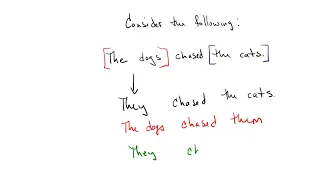 Consider the following:
[The dogs] chased [the cats.]
They chased the cats.
The dogs chased them
They ch